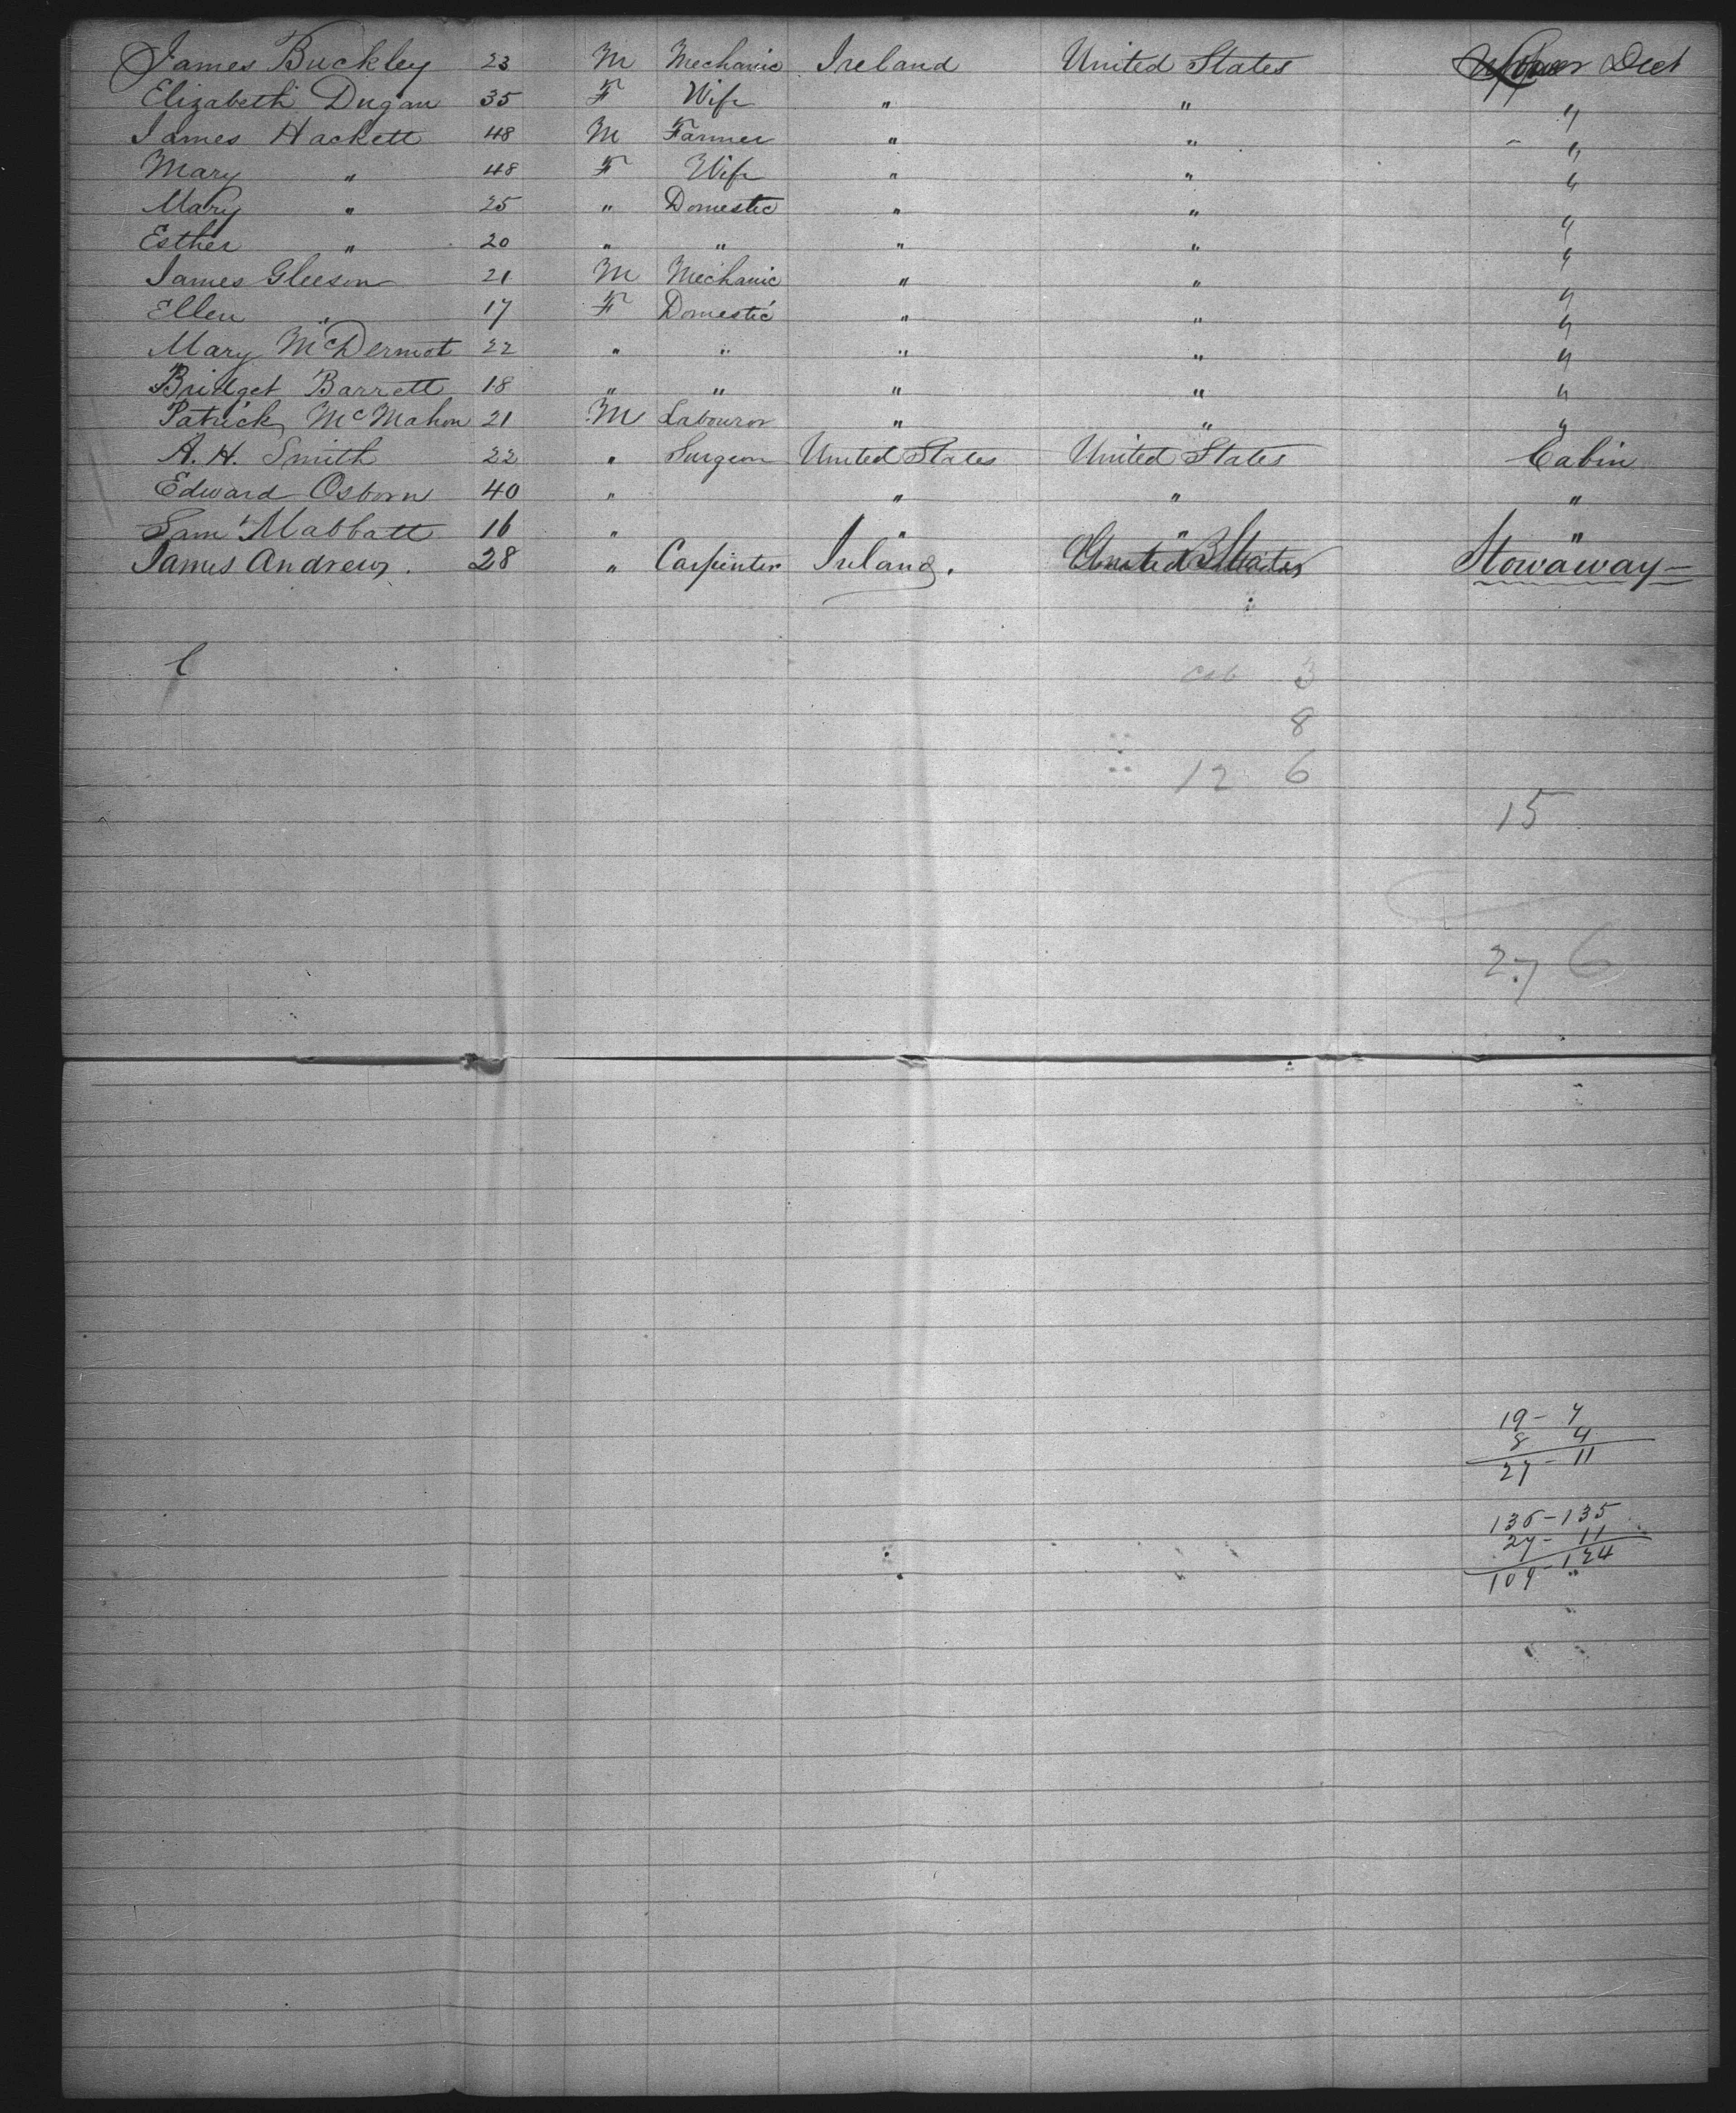 James Buckley 23 M Mechanic Ireland United States Upper Deck
Elizabeth Dugan 35 F Wife " " "
James Hackett 48 M Farmer " " "
Mary " 48 F Wife " " "
Mary " 25 " Domestic " " "
Esther " 20 " " " " "
James Gleeson 21 M Mechanic " " "
Ellen " 17 F Domestic " " "
Mary McDermot 22 " " " " "
Bridget Barrett 18 " " " " "
Patrick McMahon 21 M Labouror " " "
A. H. Smith 22 " Surgeon United States United States Cabin
Edward Osborn 40 " " " "
Saml Mabbatt 16 " " " "
James Andrews. 28 " Carpenter Ireland. United States Stowaway
cab 3
8
12 6
15
27 6
19 - 7
8 4
27 - 11
136 - 135
27 - 11
109 - 124